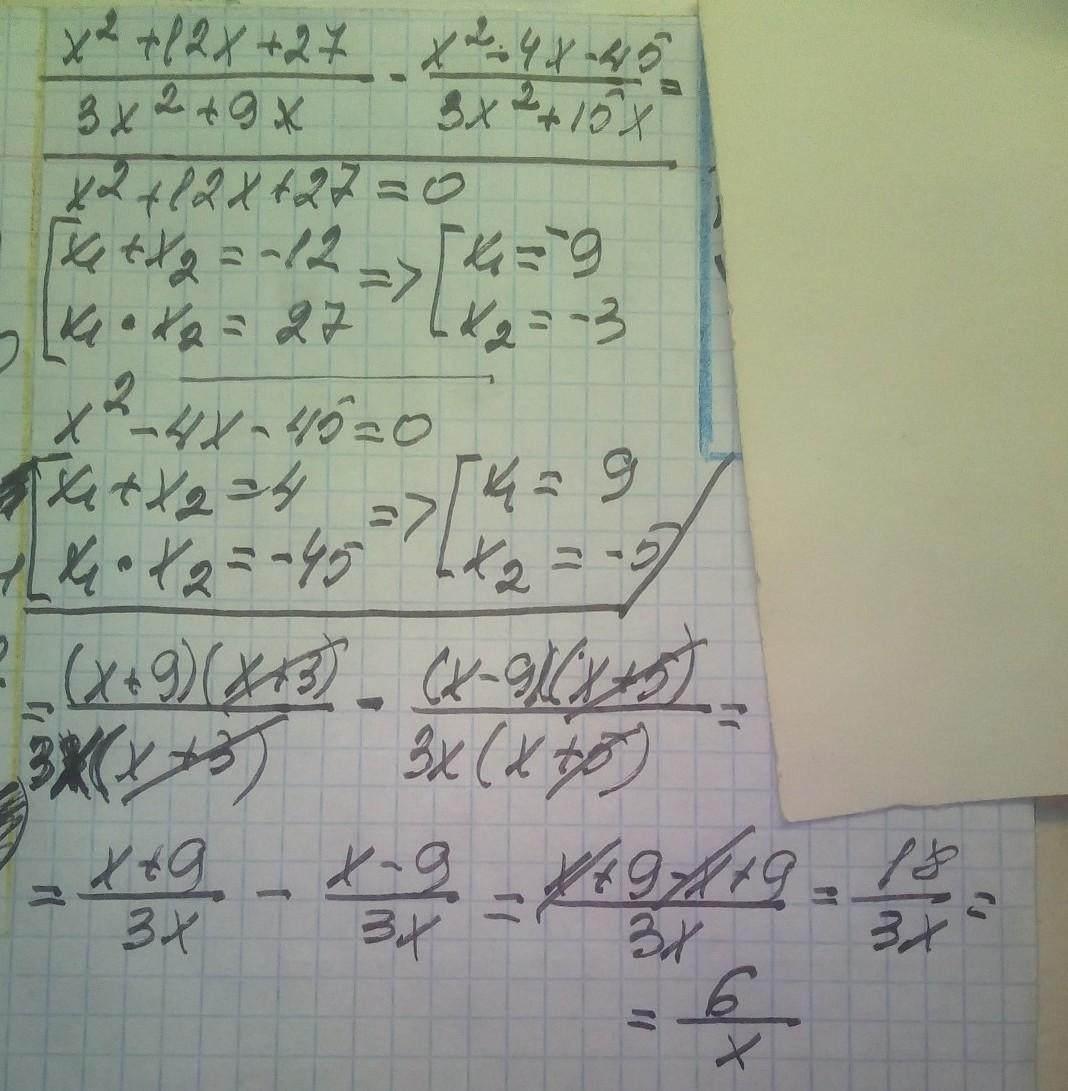 x² + 12x + 27 / 3x² + 9x - x² - 4x - 45 / 3x² + 15x =
x² + 12x + 27 = 0
[ x₁ + x₂ = -12 => [ x₁ = -9
x₁ · x₂ = 27 x₂ = -3
x² - 4x - 45 = 0
[ x₁ + x₂ = 4 => [ x₁ = 9
x₁ · x₂ = -45 x₂ = -5
= (x+9)(x+3) / 3x(x+3) - (x-9)(x+5) / 3x(x+5) =
= x+9 / 3x - x-9 / 3x = x+9-x+9 / 3x = 18 / 3x =
= 6 / x